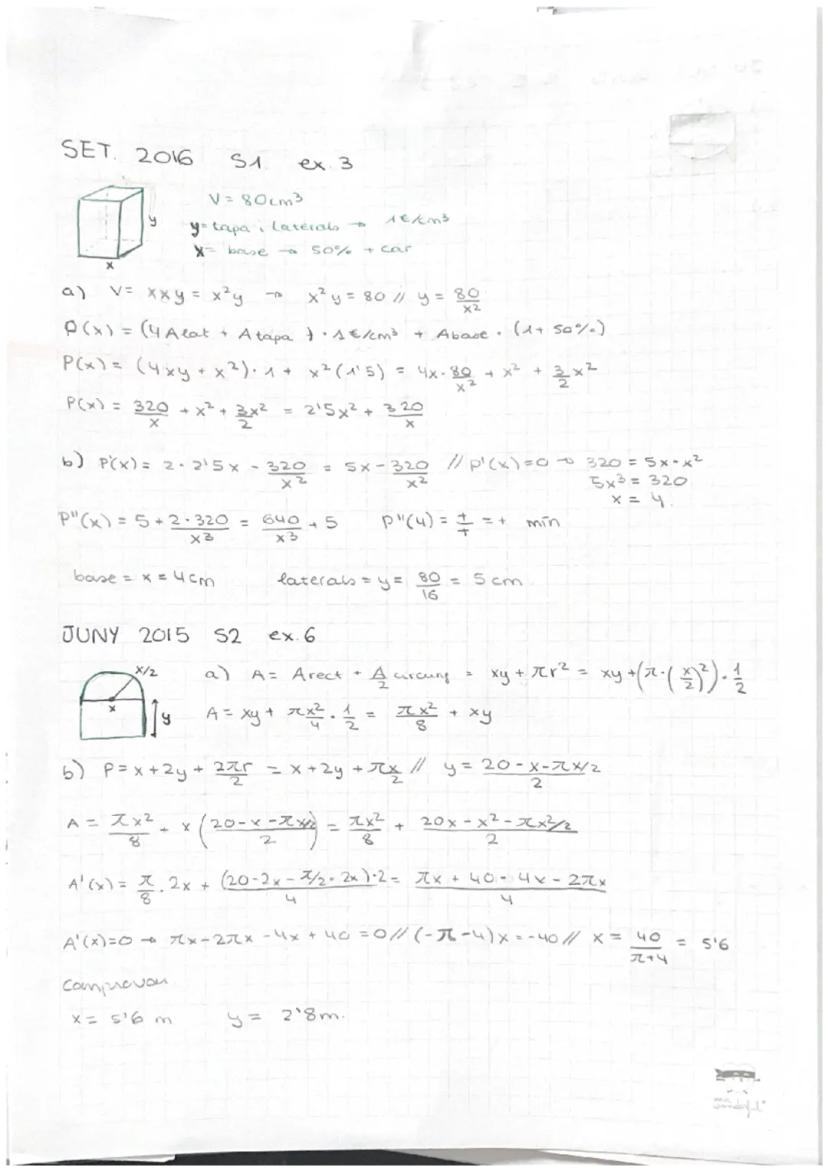 SET. 2016 S1 ex. 3
V = 80cm³
y= tapa i laterals → 1€/cm³
X= base → 50% + car
y
x
a) V= x x y = x²y → x²y = 80 // y = 80/x²
P(x) = (4 Alat + A tapa) · 1€/cm³ + Abase · (1+ 50%)
P(x) = (4xy + x²)· 1 + x²(1'5) = 4x· 80/x² + x² + 3/2 x²
P(x) = 320/x + x² + 3x²/2 = 2'5x² + 320/x
b) P'(x) = 2 · 2'5x - 320/x² = 5x - 320/x² // p'(x)=0 → 320 = 5x·x²
5x³ = 320
x = 4.
P"(x) = 5 + 2·320/x³ = 640/x³ + 5 P"(4) = +/+ = + mín
base = x = 4cm laterals = y = 80/16 = 5 cm
JUNY 2015 S2 ex. 6
x/2
x
y
a) A= Arect + A/2 circumf = xy + πr² = xy +(π·(x/2)²)·1/2
A = xy + πx²/4 · 1/2 = πx²/8 + xy
b) P = x + 2y + 2πr/2 = x + 2y + πx/2 // y = 20-x-πx/2/2
A = πx²/8 + x (20-x-πx/2/2) = πx²/8 + 20x - x² - πx²/2/2
A'(x) = π/8 · 2x + (20-2x-π/2·2x)·2/4 = πx + 40 - 4x - 2πx/4
A'(x)=0 → πx-2πx -4x + 40 = 0 // (-π-4)x = -40 // x = 40/π+4 = 5'6
comprovar
x = 5'6 m y = 2'8m.